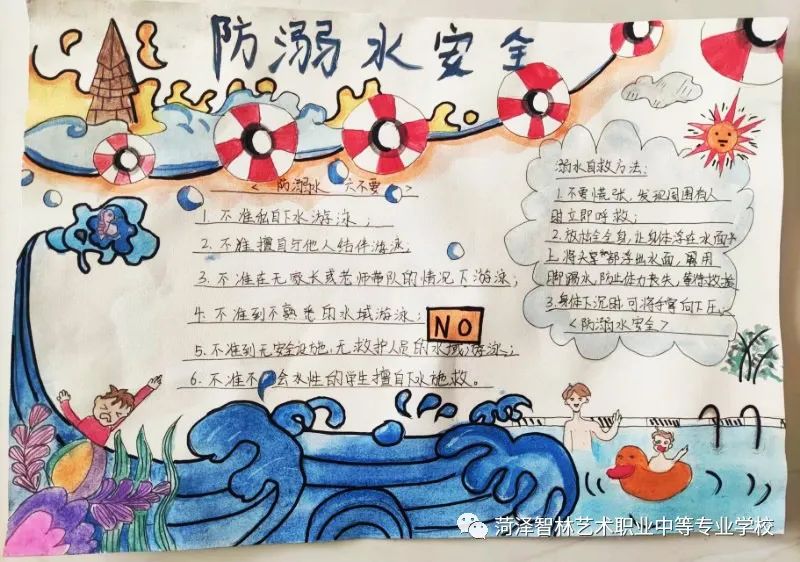 防溺水安全
< 防溺水 六不要 >
1. 不准私自下水游泳；
2. 不准擅自与他人结伴游泳；
3. 不准在无家长或老师带队的情况下游泳；
4. 不准到不熟悉的水域游泳；
NO
5. 不准到无安全设施、无救护人员的水域游泳；
6. 不准不会水性的学生擅自下水施救。
溺水自救方法：
1. 不要慌张，发现周围有人
时立即呼救；
2. 放松全身，让身体浮在水面
上，将头部浮出水面，用
脚踢水，防止体力丧失，等待救援
3. 身体下沉时，可将手掌向下压。
<防溺水安全>
菏泽智林艺术职业中等专业学校